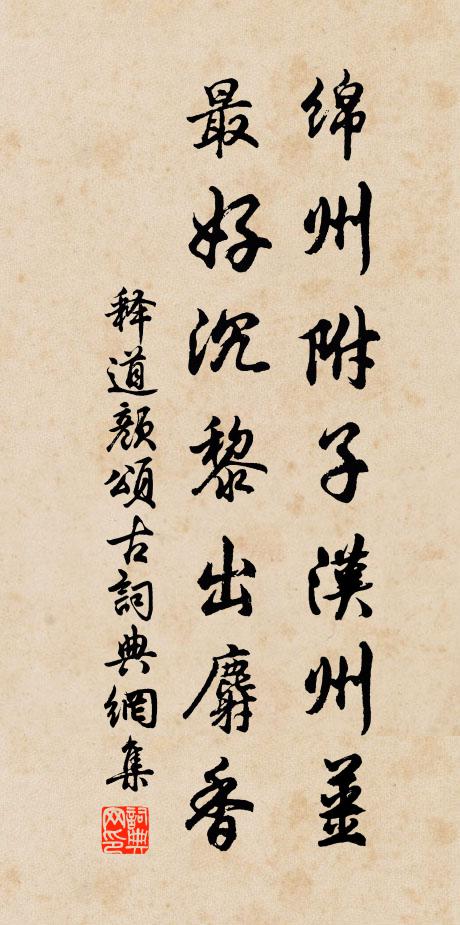 绵州附子漢州薑
最好沉黎出麝香
释道颜頌古詞典網集
詞典网印